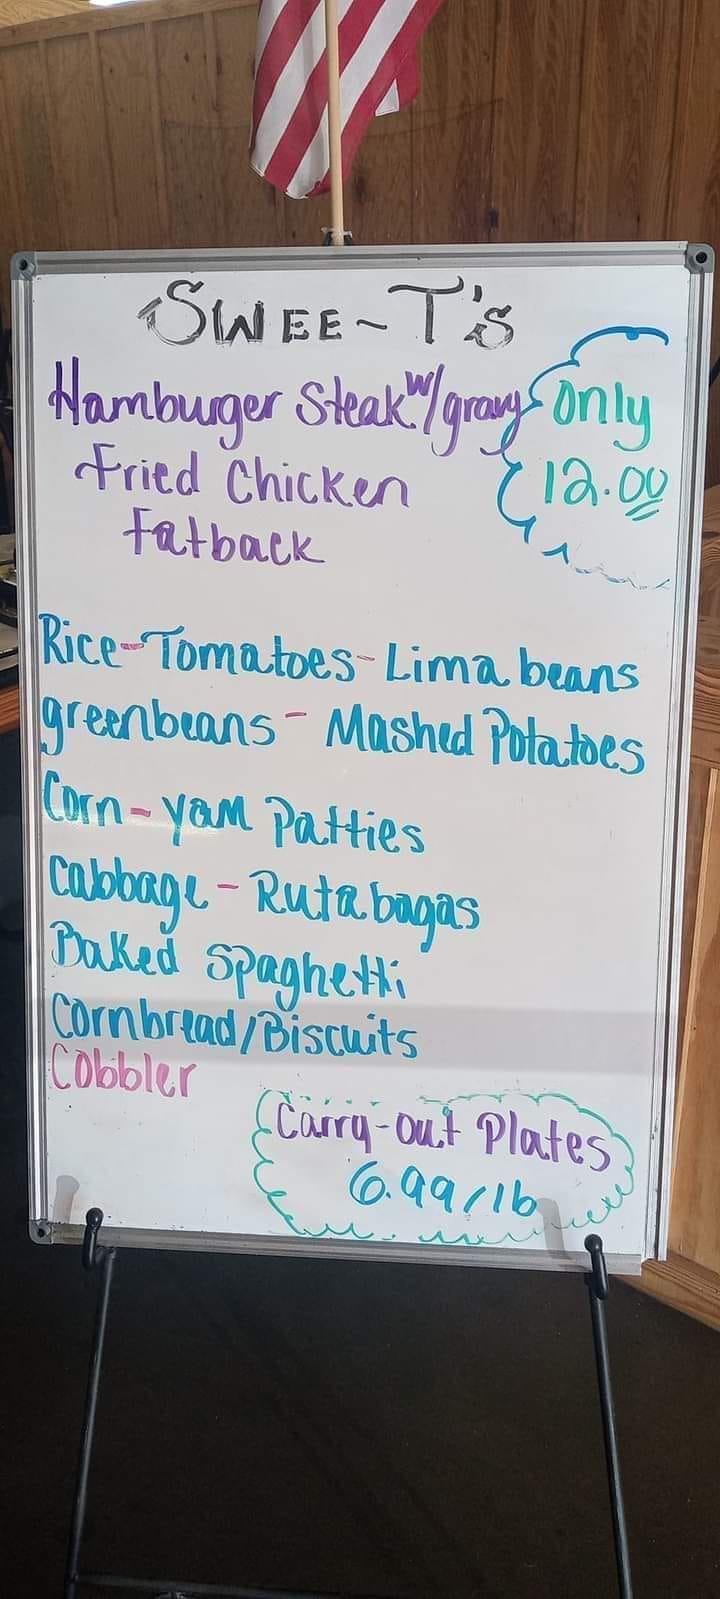 Swee~T's
Hamburger Steak w/gravy
Only
12.00
Fried Chicken
Fatback
Rice-Tomatoes-Lima beans
greenbeans - Mashed Potatoes
Corn-yam Patties
Cabbage-Rutabagas
Baked Spaghetti
Cornbread/Biscuits
Cobbler
Carry-out Plates
6.99/lb